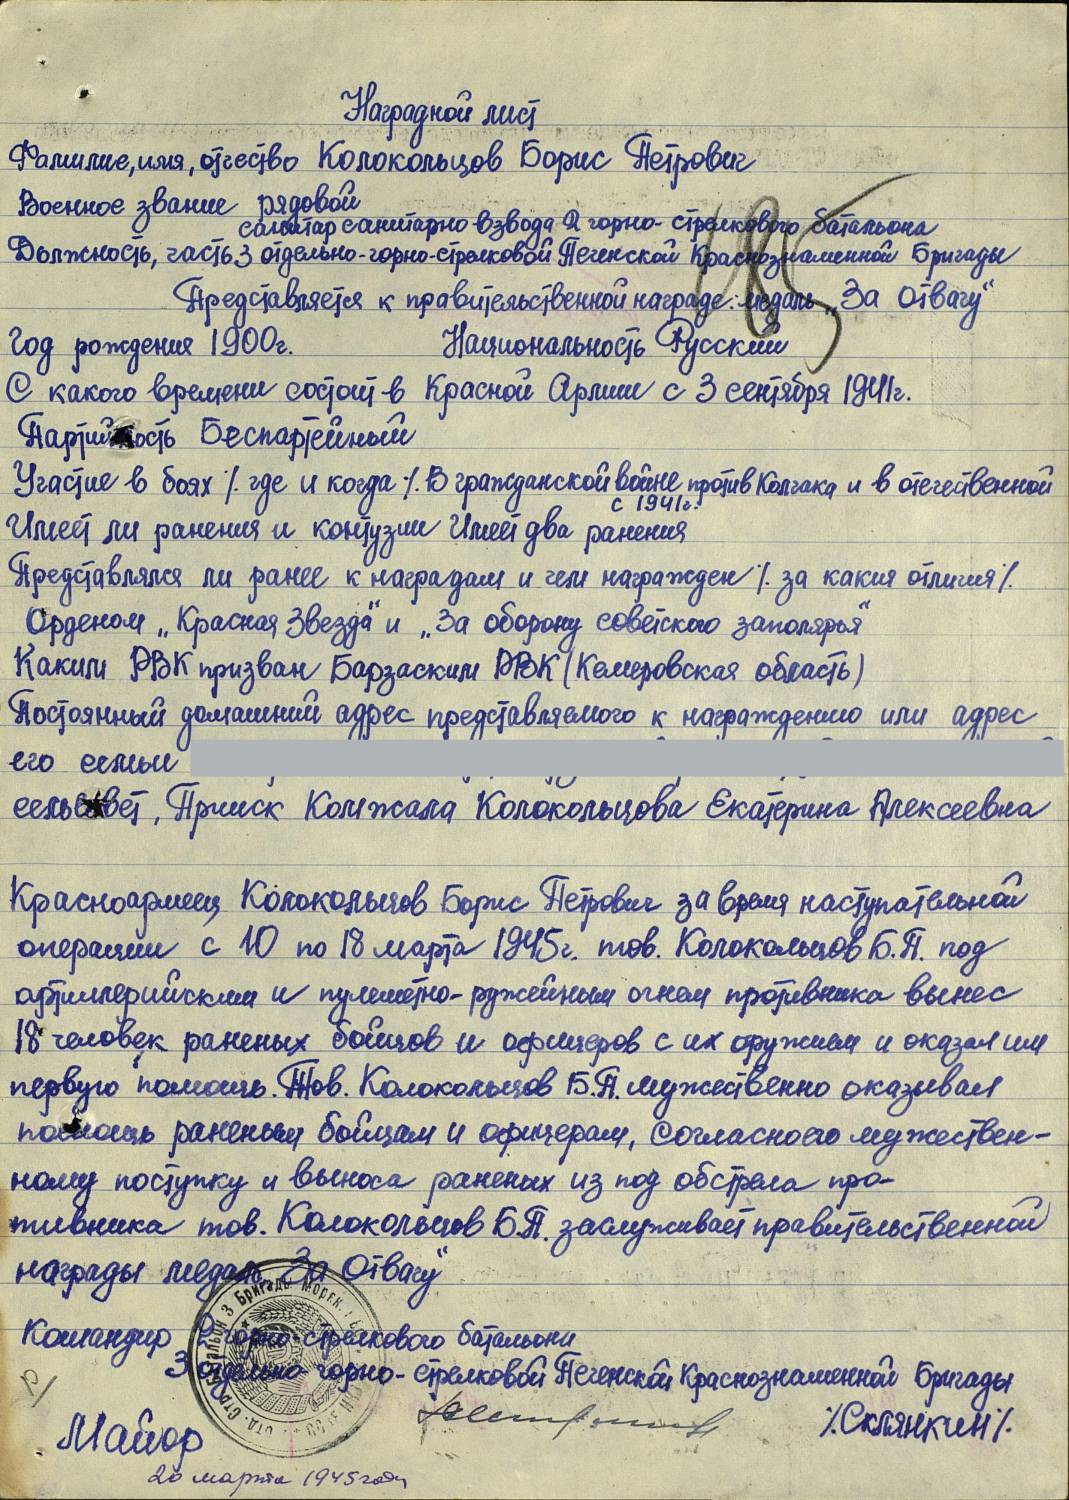 Наградной лист
Фамилие, имя, отчество Колокольцов Борис Петрович
Военное звание рядовой
санитар санитарно взвода 2 горно-стрелкового батальона
Должность, часть 3 отдельно-горно-стрелковой Печенской Краснознаменной Бригады
Представляется к правительственной награде: медаль „За Отвагу“
Год рождения 1900г. Национальность Русский
С какого времени состоит в Красной Армии с 3 сентября 1941г.
Партийность Беспартейный
Участие в боях /. где и когда /. В гражданской войне против Колчака и в отечественной
с 1941г.
Имеет ли ранения и контузии Имеет два ранения
Представлялся ли ранее к наградам и чем награжден /. за какия отличия /.
Орденом „Красная Звезда“ и „За оборону советского заполярья“
Каким РВК призван Барзаским РВК (Кемеровская область)
Постоянный домашний адрес представляемого к награждению или адрес
его семьи
сельсвет, Прииск Колжала Колокольцова Екатерина Алексеевна
Красноармеец Колокольцов Борис Петрович за время наступательной
операции с 10 по 18 марта 1945г. тов. Колокольцов Б.П. под
артиллерийским и пулеметно-ружейным огнем противника вынес
18 человек раненых бойцов и офицеров с их оружием и оказал им
первую помощь. Тов. Колокольцов Б.П. мужественно оказывал
помощь раненым бойцам и офицерам, Согласноего мужествен-
ному поступку и выноса раненых из под обстрела про-
тивника тов. Колокольцов Б.П. заслуживает правительственной
награды медаль „За Отвагу“
Командир 2 горно-стрелкового батальони
3 отдельно горно-стрелковой Печенской Краснознаменной Бригады
Майор /.Склянкин/.
20 марта 1945 года